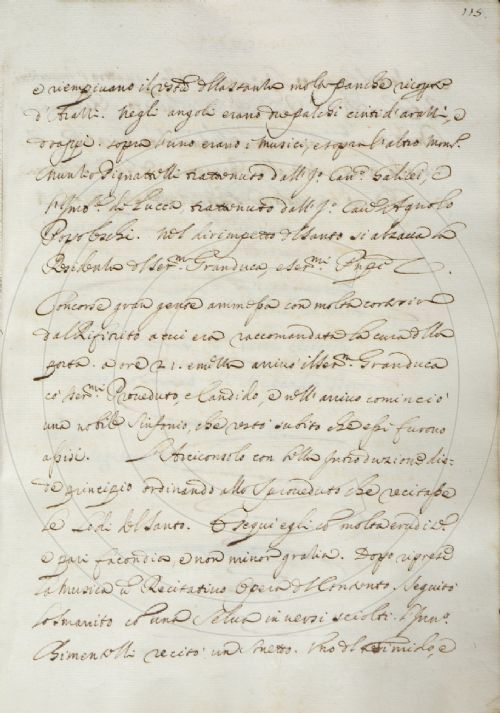 115.
e riempivano il resto della stanza molte panche ricoperte
d'Arazzi. Negli angoli erano due palchi cinti d'arazzi, e
drappi. sopra l'uno erano i Musici, e sopra l'altro Mons.r
Nunzio Pignattelli trattenuto dall' S.r Cav.r Galilei, e
di Lucca trattenuto dall' S.r Cav.r Agnolo
Nel dirimpetto del Santo si alzava la
Residenza del Ser.mo Granduca e Ser.mi Pnpi
Concorse gran gente ammessa con molta cortesia
dal Rifiorito a cui era raccomandata la cura della
porta. a ore 21. e mezza arrivò il Ser.mo Granduca
co' Ser.mi e nell' arrivo cominciò
una nobile Sinfonia, che restò subito che essi furono
assisi. L'Arciconsolo con bella Introduzione diede
principio ordinando allo Sproveduto che recitasse
le Lodi del Santo. E seguì egli con molta erudizione
e pari facondia, e non minor grazia. Dopo riprese
la Musica un Recitativo Opera del Seguitò
lo Smarrito con una Selva in versi sciolti.
Chimentelli recitò un Sonetto. Uno il Timido, e